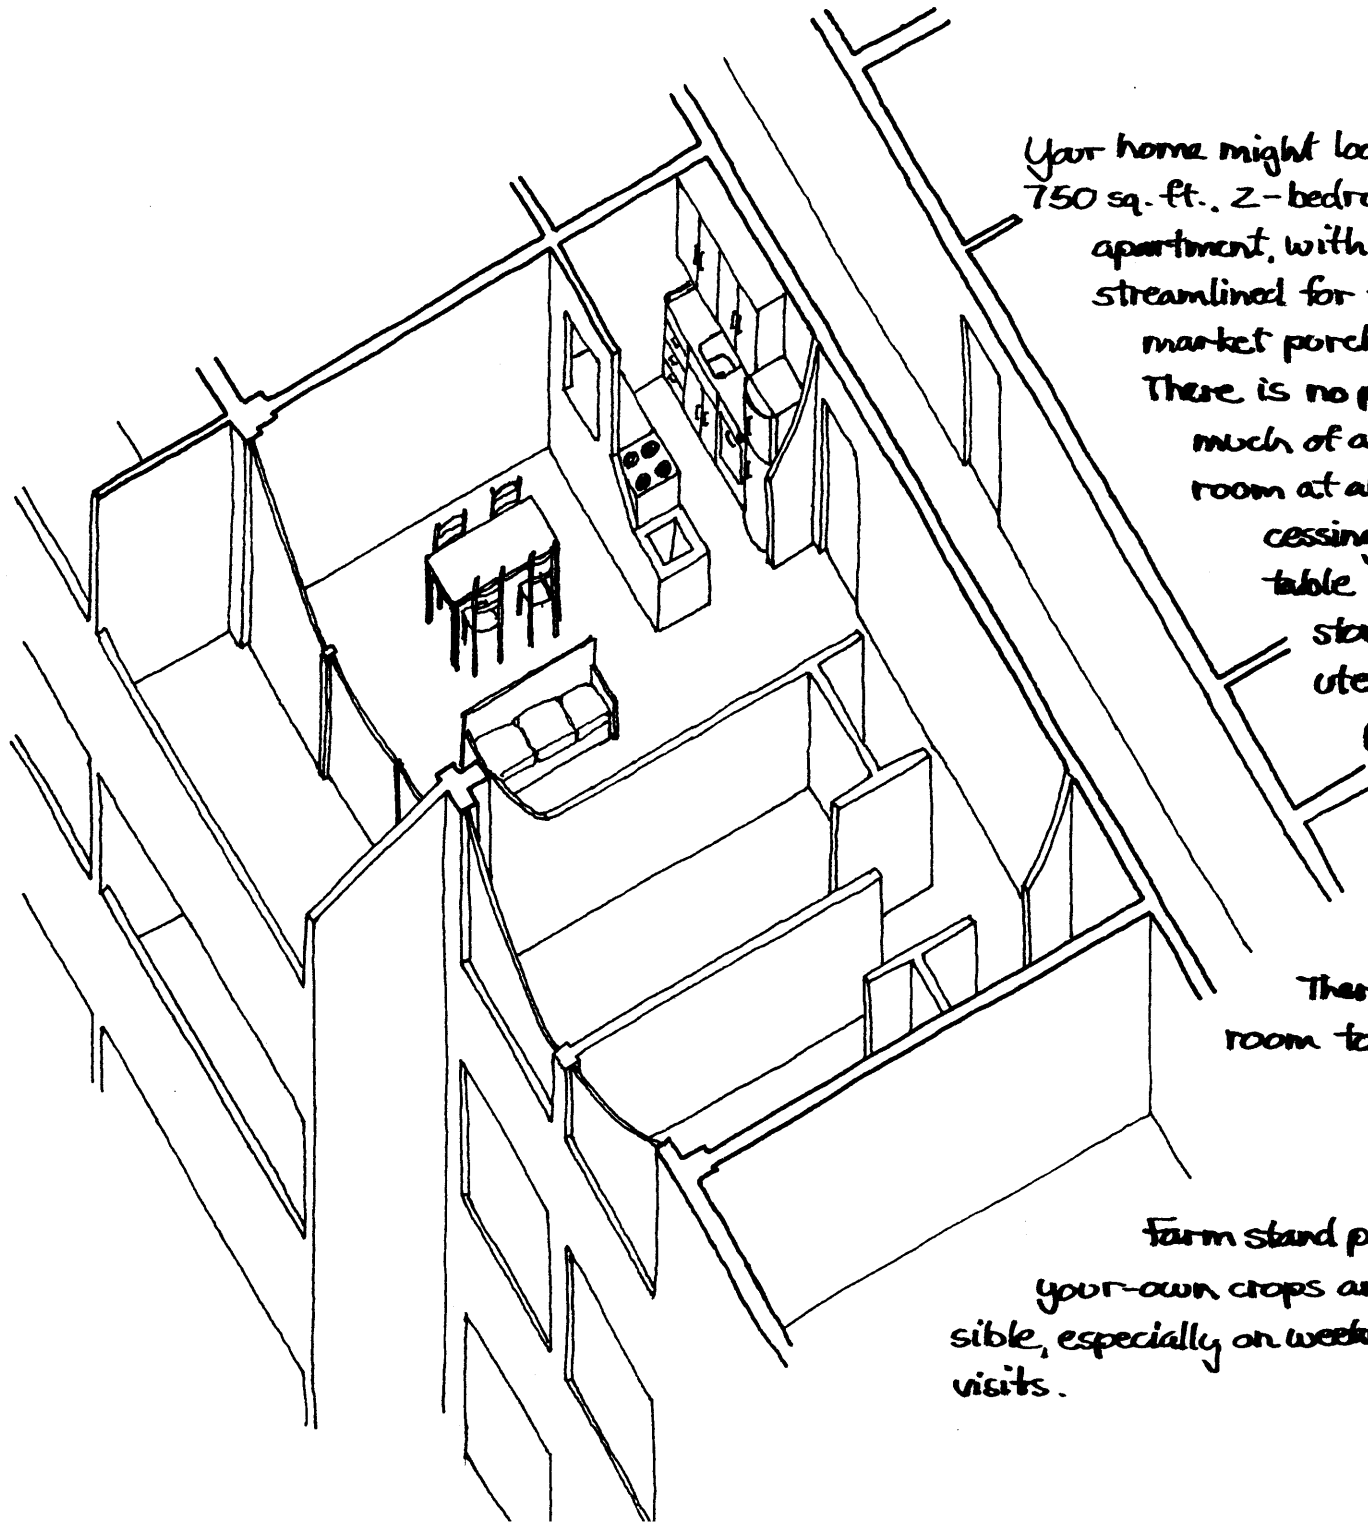 Your home might loo
750 sq. ft., 2-bedro
apartment, with
streamlined for
market porch
There is no p
much of a
room at a
cessing
table
stor
ute
Ther
room to
Farm stand p
your-own crops a
sible, especially on week
visits.